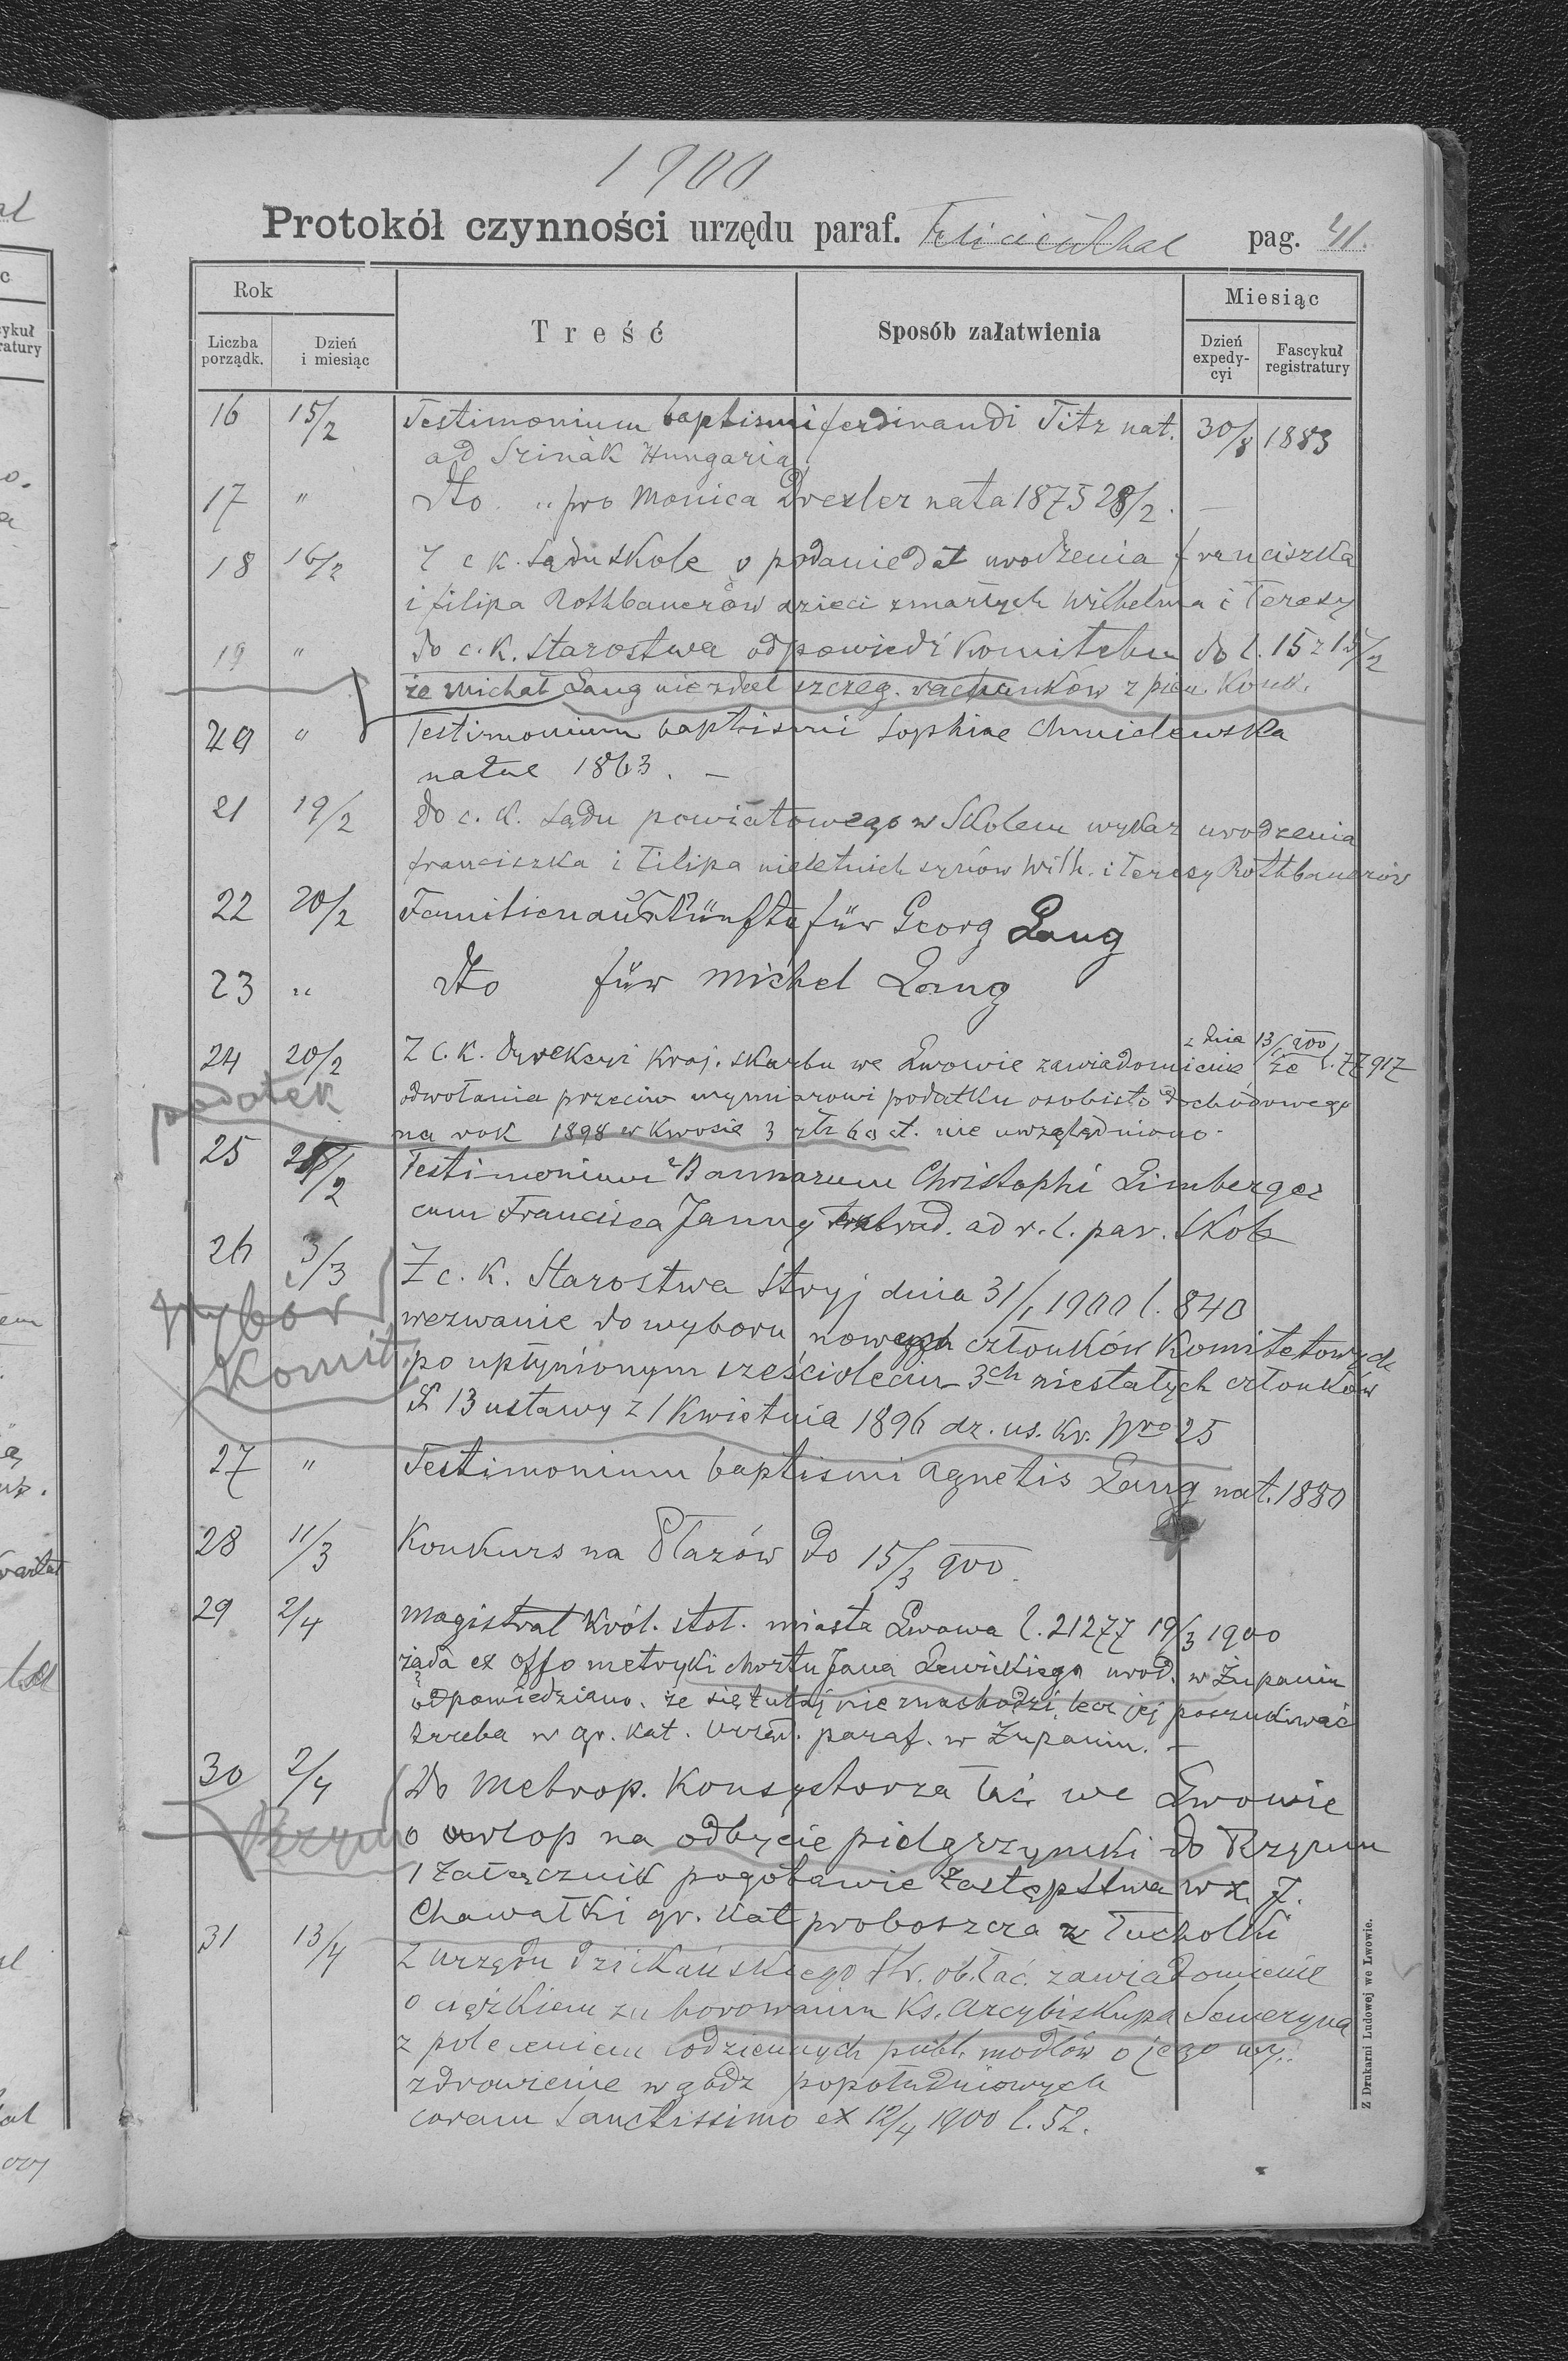 1900
Protokół czynności urzędu paraf. Felicienthal pag. 41.
Rok
Treść
Sposób załatwienia
Miesiąc
Liczba porządk.
Dzień i miesiąc
Dzień expedy-cyi
Fascykuł registratury
16 15/2 Testimonium baptismi ferdinandi Titz nat. 30/8 1883
ad Szinák Hungaria
17 " dto. " pro Monica Drexler nata 1875 28/2. —
18 16/2 Z c k. Sądu Skole o podanie dat urodzenia franciszka
i filipa Rothbauerów dzieci zmarłych Wilhelma i Teresy
19 " do c. k. Starostwa odpowiedź Komitetu do l. 15 z 15/2
że Michał Lang nie zdał szczeg. rachunków z pien. Konk.
20 " Testimonium baptismi Sophiae Chmielewska
natae 1863. —
21 19/2 do c. k. Sądu powiatowego w Skolem wykaz urodzenia
franciszka i Filipa nieletnich synów Wilh. i Teresy Rothbauerów
22 20/2 Familienauskünfte für Georg Lang
23 " dto für Michel Lang
z dnia 13/1 900
24 20/2 Z c. k. Dyrekcyi kraj. skarbu we Lwowie zawiadomienie że l. 77917
podatek
odwołania przeciw wymiarowi podatku osobisto dochodowego
na rok 1898 w kwocie 3 złr 60 ct. nie uwzględniono.
25 /2 Testimonium Bannorum Christophi Limberger
cum Francisca Janny ad r. l. par. Skole
26 3/3 Z c. k. Starostwa Stryj dnia 31/1 1900 l. 840
wybór
wezwanie do wyboru nowych członków Komitetowych
Komit.
po upłynionym sześcioleciu 3ch niestałych członków
§ 13 ustawy z 1 Kwietnia 1896 dz. us. kr. Nro 25
27 " Testimonium baptismi Agnetis Lang nat. 1880
28 11/3 Konkurs na Płazów do 15/3 900.
29 2/4 Magistrat Król. stoł. miasta Lwowa l. 21277 19/3 1900
żąda ex offo metryki chrztu Jana Lewickiego urod. w Żupaniu
odpowiedziano, że się tutaj nie znachodzi, lecz jej poszukiwać
trzeba w gr. kat. Urzęd. paraf. w Żupaniu. —
30 2/4 Do Metrop. Konsystorza łać. we Lwowie
Rzym
o urlop na odbycie pielgrzymki do Rzymu
1 załącznik pogotowie Zastępstwa w x. J.
Chawałki gr. kat proboszcza z Tucholki
31 13/4 Z urzędu dziekańskiego Str. ob. łać. zawiadomienie
o ciężkiem zachorowaniu Ks. Arcybiskupa Seweryna
z poleceniem codziennych publ. modłów o jego wy-
zdrowienie w godz popołudniowych
coram Sanctissimo ex 12/4 1900 l. 52.
Z Drukarni Ludowej we Lwowie.